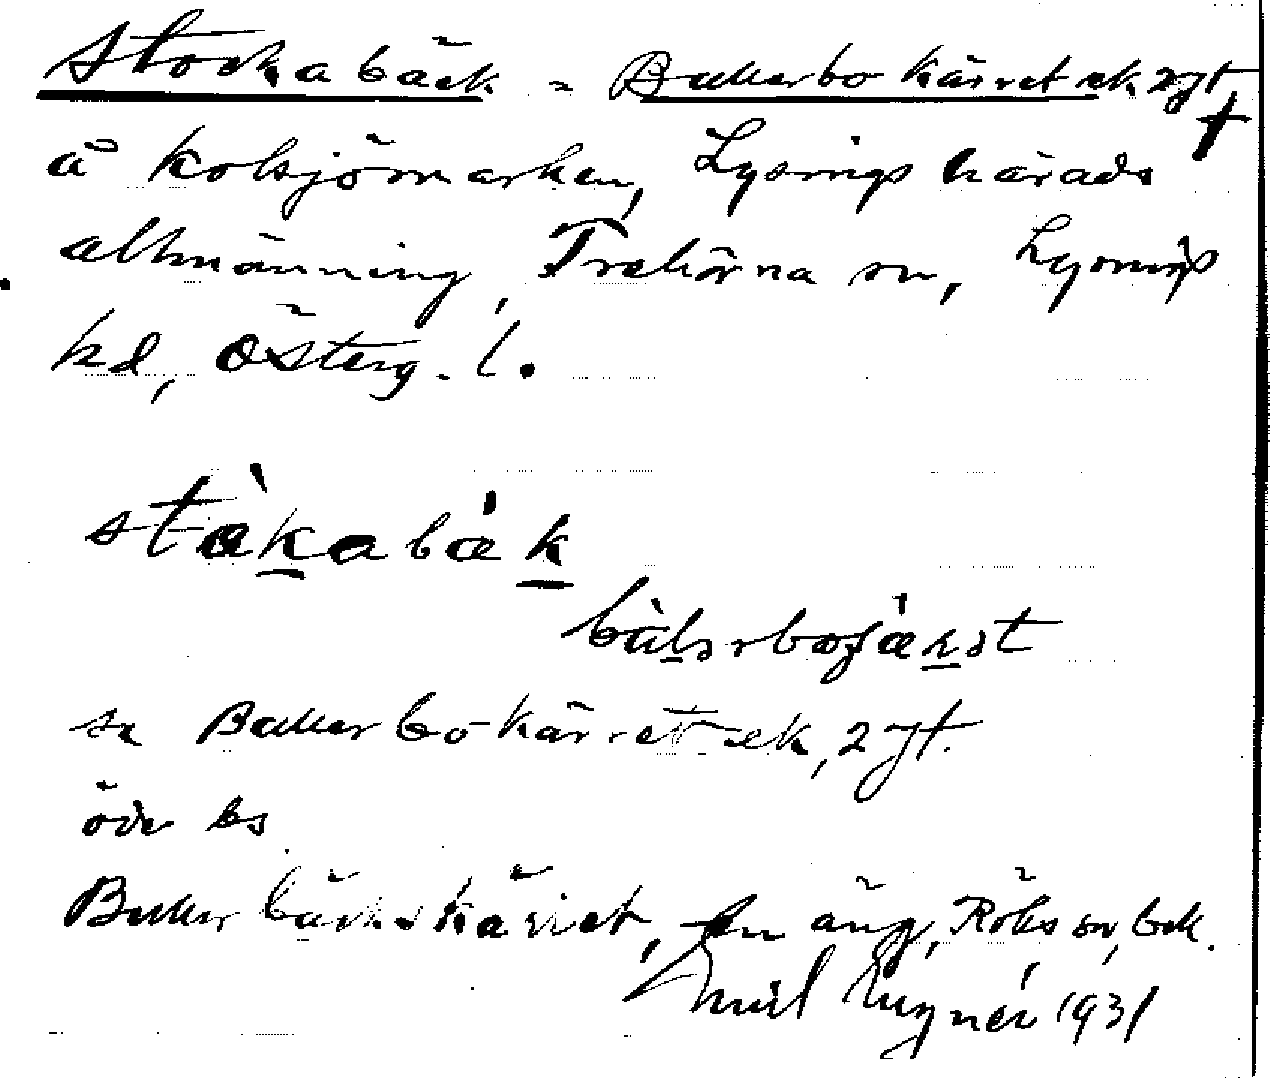 Stockabäck = Bullerbokärret ek 2 jt
å Holsjömarken, Lysings härads
allmänning, Trehörna sn, Lysings
hd, Österg. l.
stàkabæ̀k
bùlərboçæ̀rət
se Bullerbo-kärret ek, 2 jt.
öde bs
Bullerbäckskärret, en äng, Röks sn, bek.
Emil Lugnér 1931